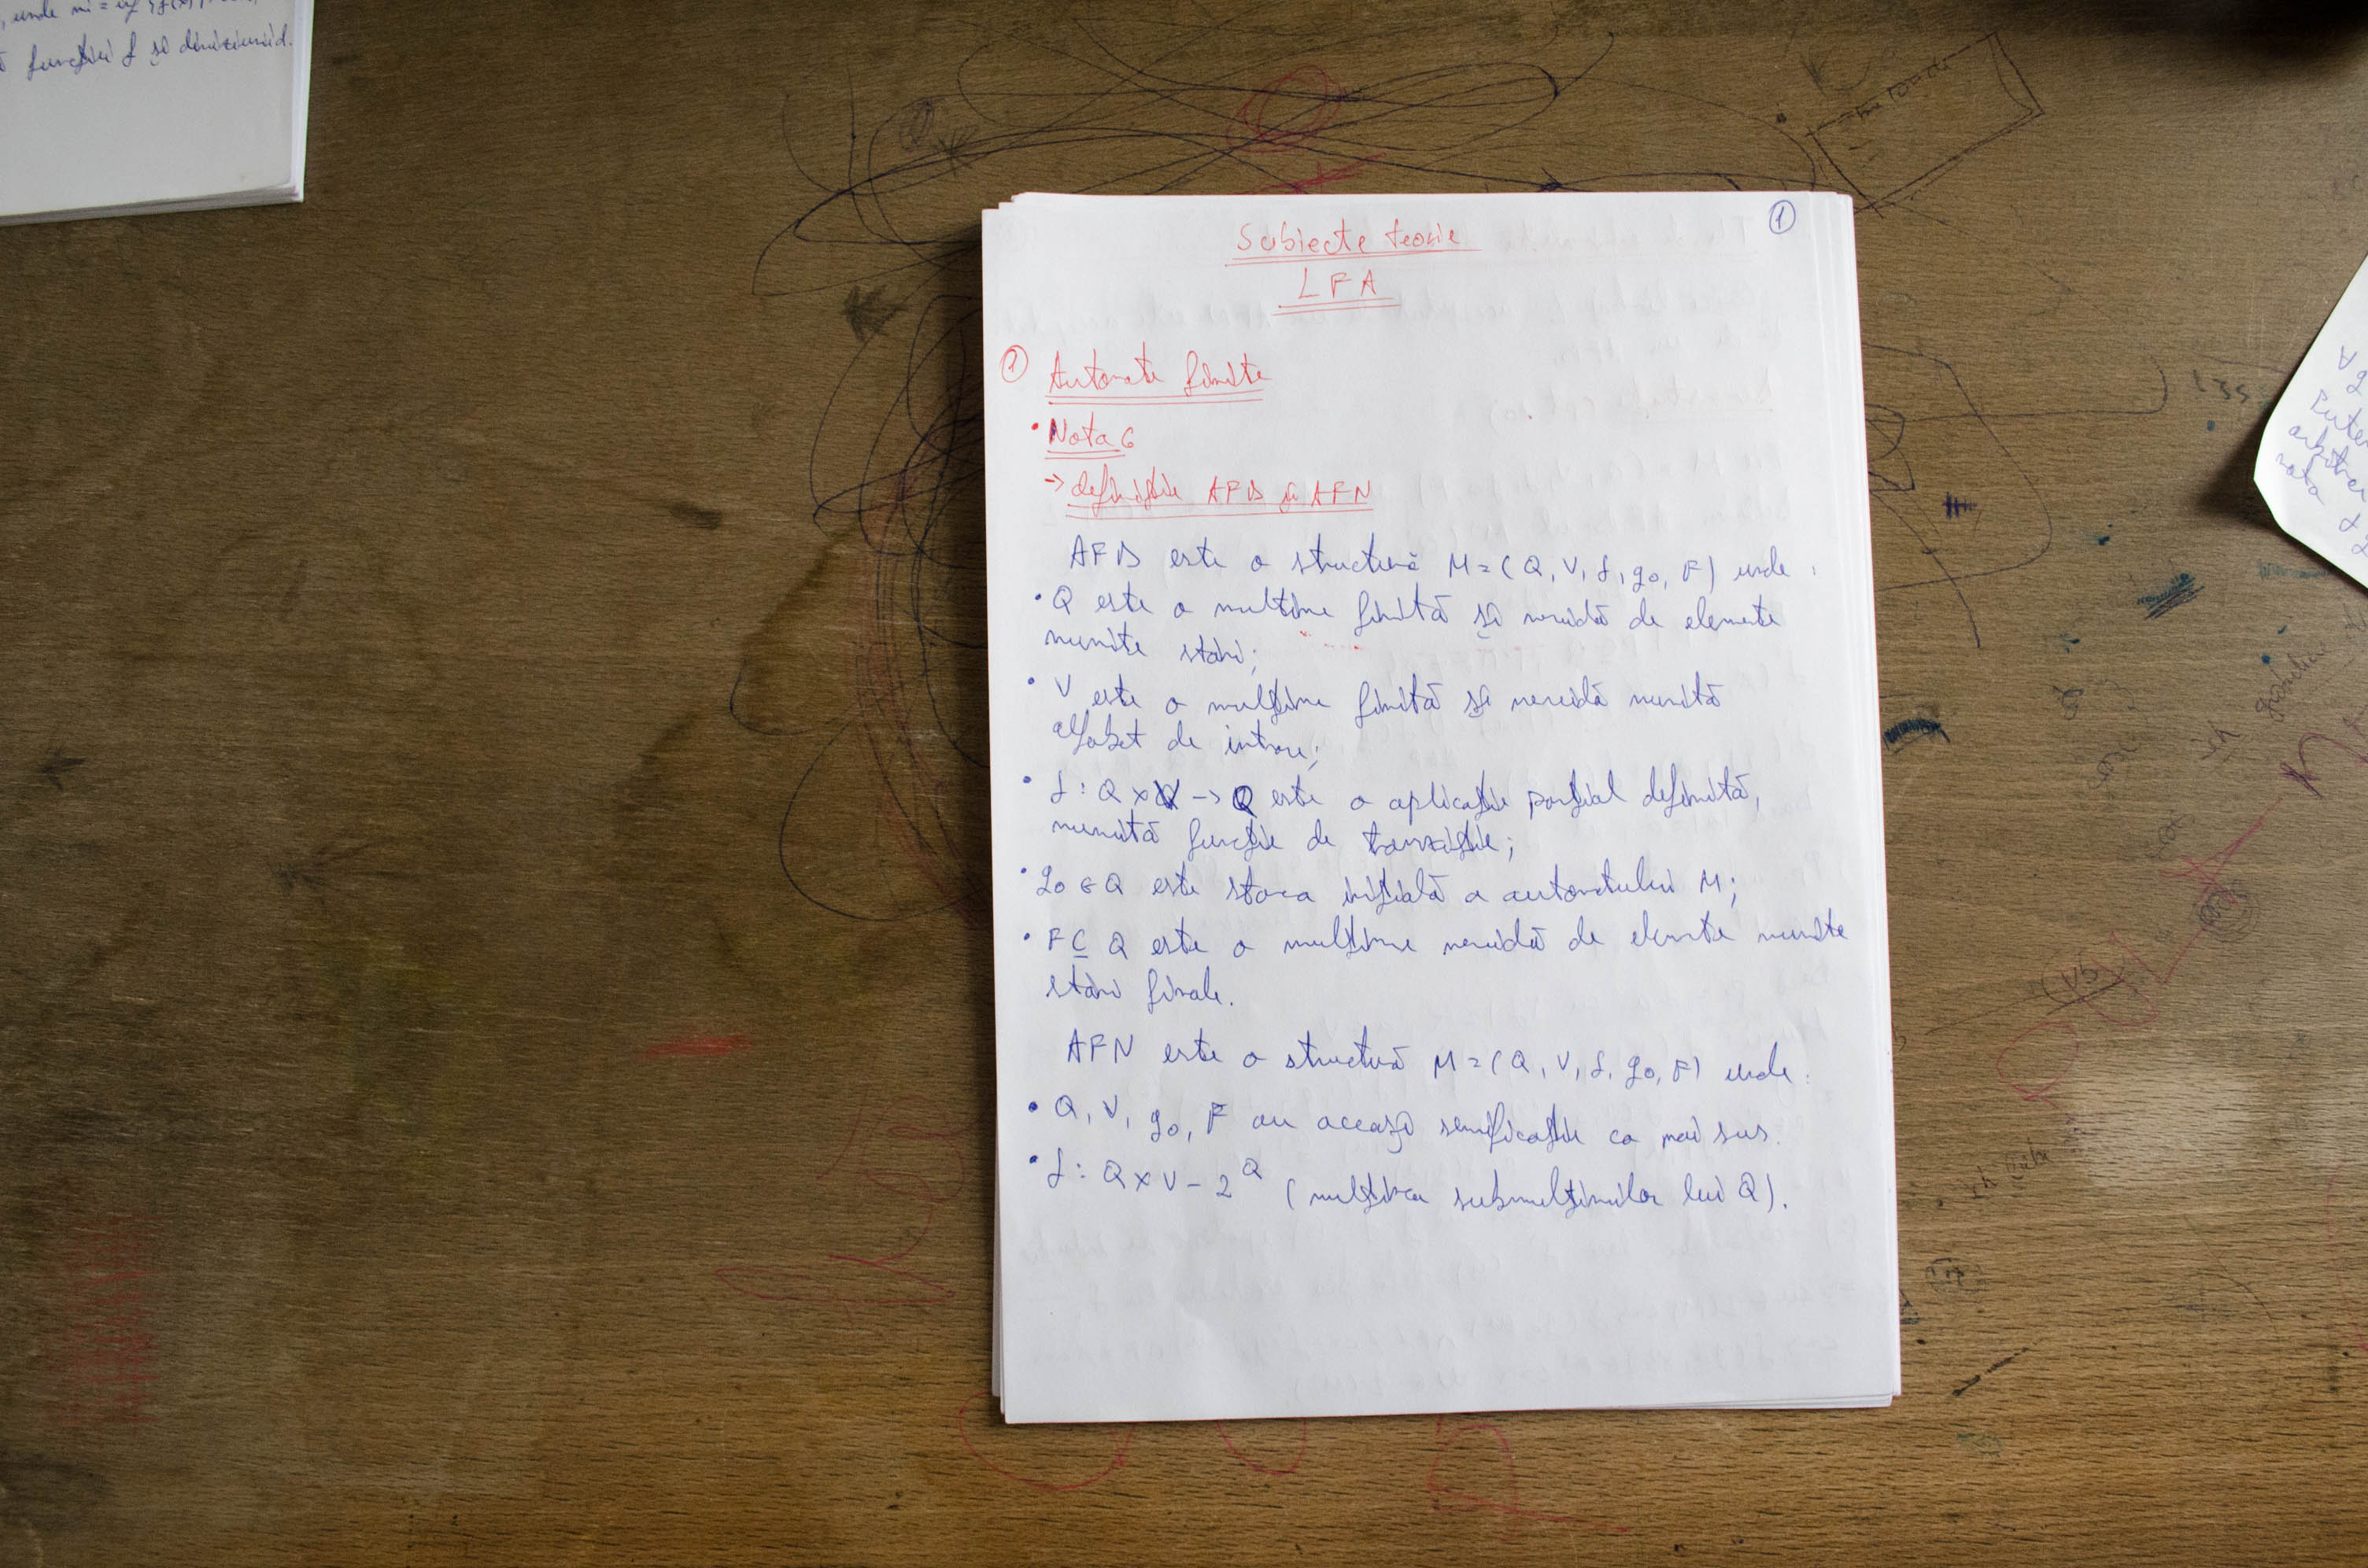 , unde mi = inf {f(x)
funcției f și diviziunii d.
1
Subiecte teorie
LFA
1 Automate finite
• Nota 6
→ definiție AFD și AFN
AFD este o structură M = (Q, V, f, q0, F) unde:
• Q este o multime finită și nevidă de elemente
numite stări;
• V este o mulțime finită și nevidă numită
alfabet de intrare;
• f: Q x V → Q este o aplicație parțial definită,
numită funcție de tranziție;
• q0 ∈ Q este starea inițială a automatului M;
• F ⊆ Q este o mulțime nevidă de elemente numite
stări finale.
AFN este o structură M = (Q, V, f, q0, F) unde:
• Q, V, q0, F au aceași semificație ca mai sus.
• f: Q x V - 2^Q (mulțimea submulțimilor lui Q).